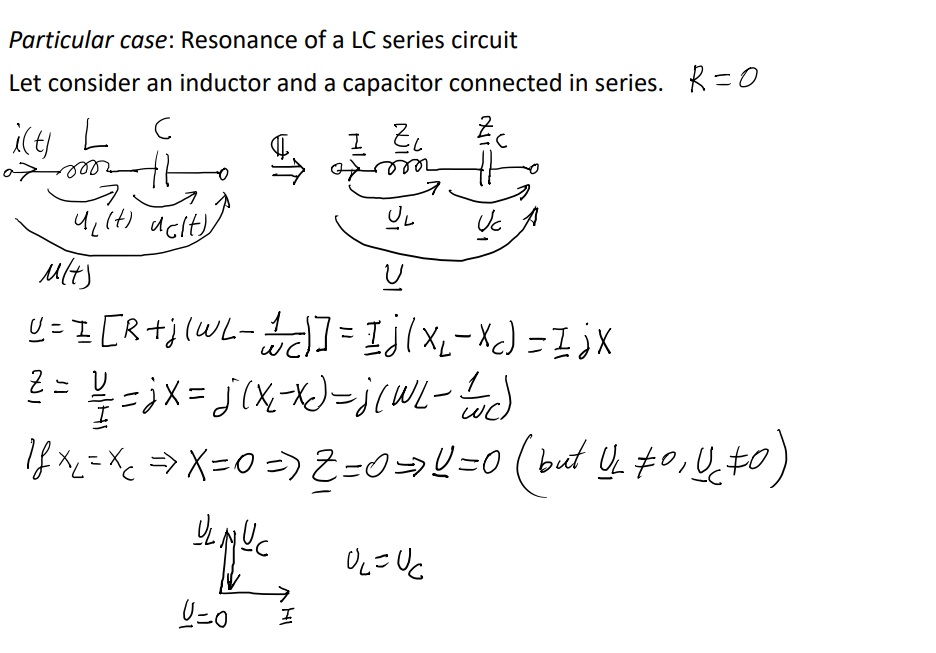 Particular case: Resonance of a LC series circuit
Let consider an inductor and a capacitor connected in series. R = 0
i(t) L C ⇒ I Z_L Z_C
u_L(t) u_C(t) U_L U_C
u(t) U
U = I [R + j(ωL - 1/ωC)] = I j(X_L - X_C) = I jX
Z = U/I = jX = j(X_L - X_C) = j(ωL - 1/ωC)
If X_L = X_C ⇒ X = 0 ⇒ Z = 0 ⇒ U = 0 (but U_L ≠ 0, U_C ≠ 0)
U_L U_C U_L = U_C
U = 0 I